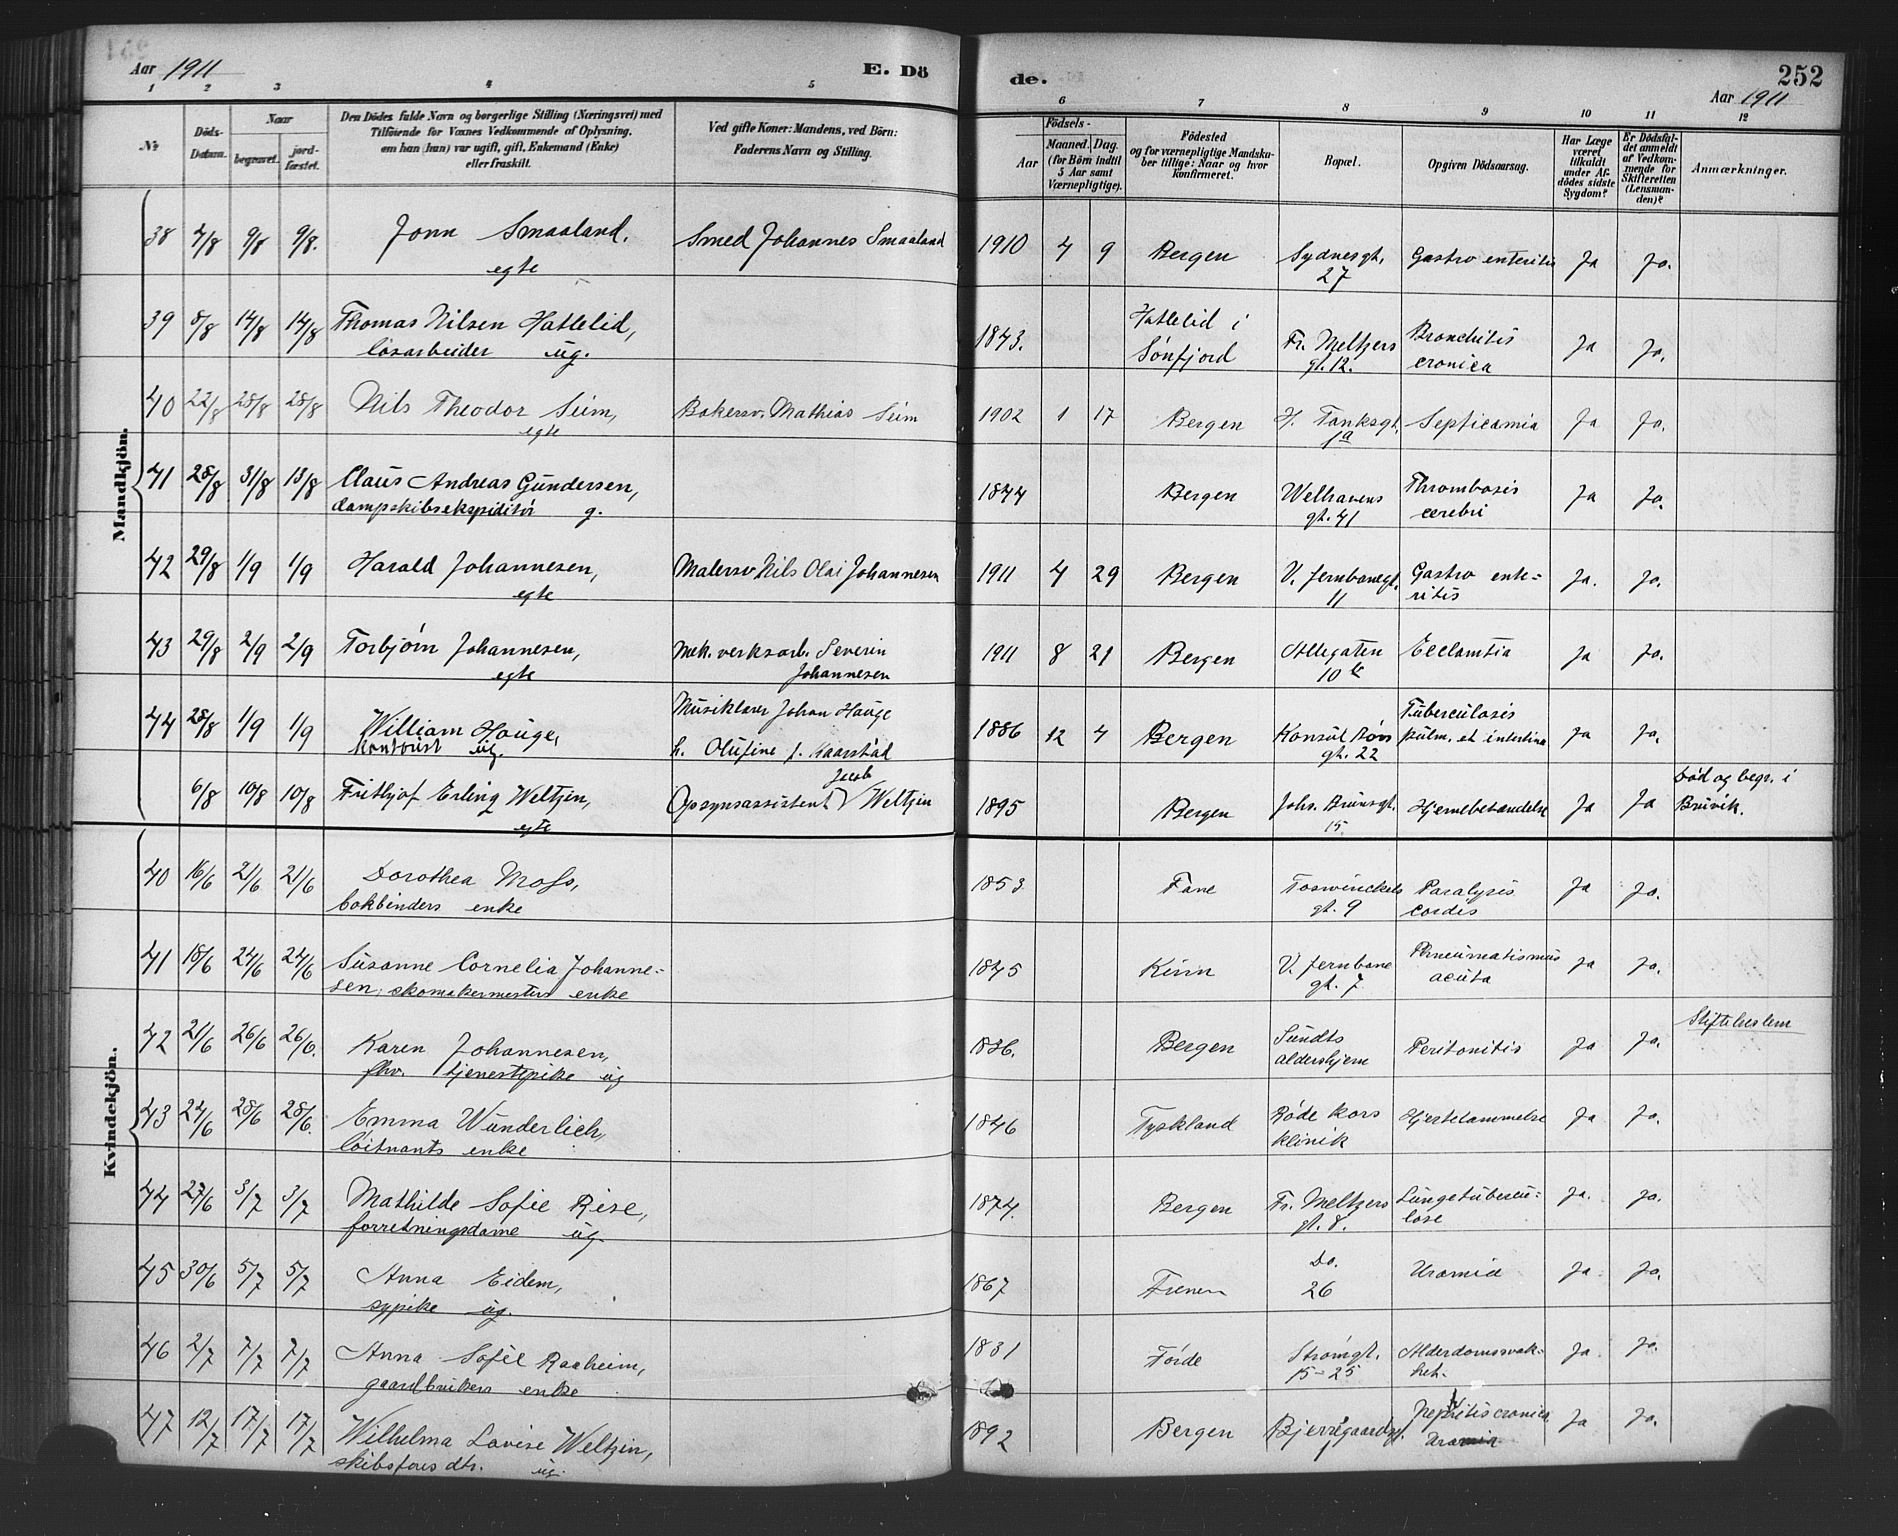 Aar 1911
E. Dö
de.
252
Aar 1911
1 2 3 4 5 6 7 8 9 10 11 12
No
Döds-Datum.
Naar
begravet.
jord-fæstet.
Den Dödes fulde Navn og borgerlige Stilling (Næringsvei) med
Tilføiende for Voxnes Vedkommende af Oplysning,
om han (hun) var ugift, gift, Enkemand (Enke)
eller fraskilt.
Ved gifte Koner: Mandens, ved Börn:
Faderens Navn og Stilling.
Födsels-
Aar
Maaned. Dag.
(for Börn indtil
5 Aar samt
Værnepligtige).
Födested
og for værnepligtige Mandska-
ber tillige: Naar og hvor
konfirmeret.
Bopæl.
Opgiven Dödsaarsag.
Har Læge
været
tilkaldt
under Af-
dödes sidste
Sygdom?
Er Dödsfal-
det anmeldt
af Vedkom-
mende for
Skifteretten
(Lensman-
den)?
Anmærkninger.
Mandkjön.
38 4/8 9/8 9/8. Jonn Smaaland, Smed Johannes Smaaland 1910 4 9 Bergen Sydnesgt. Gastro enteritis Ja Ja.
egte 27
39 8/8 14/8 14/8 Thomas Nilsen Hatlelid, 1843. Hatlelid i Fr. Meltzers Bronchitis Ja Ja.
løsarbeider ug. Sønfjord gt. 12. cronica
40 22/8 28/8 28/8 Nils Theodor Seim, Bakersv. Mathias Seim 1902 1 17 Bergen H. Tanksgt. Septicamia Ja Ja.
egte 1a
41 28/8 31/8 13/8 Claus Andreas Gundersen, 1844 Bergen Welhavens Thrombosis Ja Ja.
dampskibsekspiditør g. gt. 41 cerebri
42 29/8 1/9 1/9 Harald Johannesen, Malersv. Nils Olai Johannesen 1911 4 29 Bergen V. Jernbanegt. Gastro ente- Ja. Ja.
egte 11 ritis
43 29/8 2/9 2/9 Torbjørn Johannesen, Mek. verksarb. Severin 1911 8 21 Bergen Allegaten Eclamsia Ja Ja.
egte Johannesen 10
44 28/8 1/9 1/9 William Hauge, Musiklærer Johan Hauge 1886 12 4 Bergen Konsul Børs Tuberculosis Ja Ja.
kontorist ug. h. Olufine f. Kaarstad gt. 22 pulm. et intestina
6/8 10/8 10/8 Frithjof Erling Weltzin, Opsynsassistent Jacob Weltzin 1895 Bergen Johs. Brunsgt. Hjernebetændelse Ja Ja Død og begr. i
egte 15. Bruvik.
Kvindekjön.
40 16/6 21/6 21/6 Dorothea Moss, 1853 Fane Toswinckels Paralysis Ja Ja.
bokbinders enke gt. 9 cordis
41 18/6 24/6 24/6 Susanne Cornelia Johanne- 1845 Kinn V. Jernbane Ja Ja.
sen, skomakermesters enke gt. 7 acuta
42 21/6 26/6 26/6. Karen Johannesen, 1836. Bergen Sundts Peritonitis Ja Ja. Stiftelseslem
fhv. tjenestepike ug aldershjem
43 24/6 28/6 28/6. Emma Wunderlich, 1846 Tyskland Røde kors Hjertelammelse Ja Ja.
løitnants enke klinik
44 27/6 3/7 3/7 Mathilde Sofie Riise, 1874. Bergen Fr. Meltzers Lungetubercu- Ja. Ja.
forretningsdame ug. gt. 8. lose
45 30/6 5/7 5/7 Anna Eidem, 1867 Do. Uræmia Ja. Ja.
sypike ug. 26
46 2/7 7/7 7/7 Anna Sofie Raaheim, 1831 Førde Strømgt. Alderdomssvak- Ja Ja.
gaardbrukers enke 15-25 het.
47 12/7 17/7 17/7 Wilhelma Lovise Weltzin, 1892 Bergen Nephritis cronica Ja Ja.
skibsførs dtr. ug. 1 Uræmia